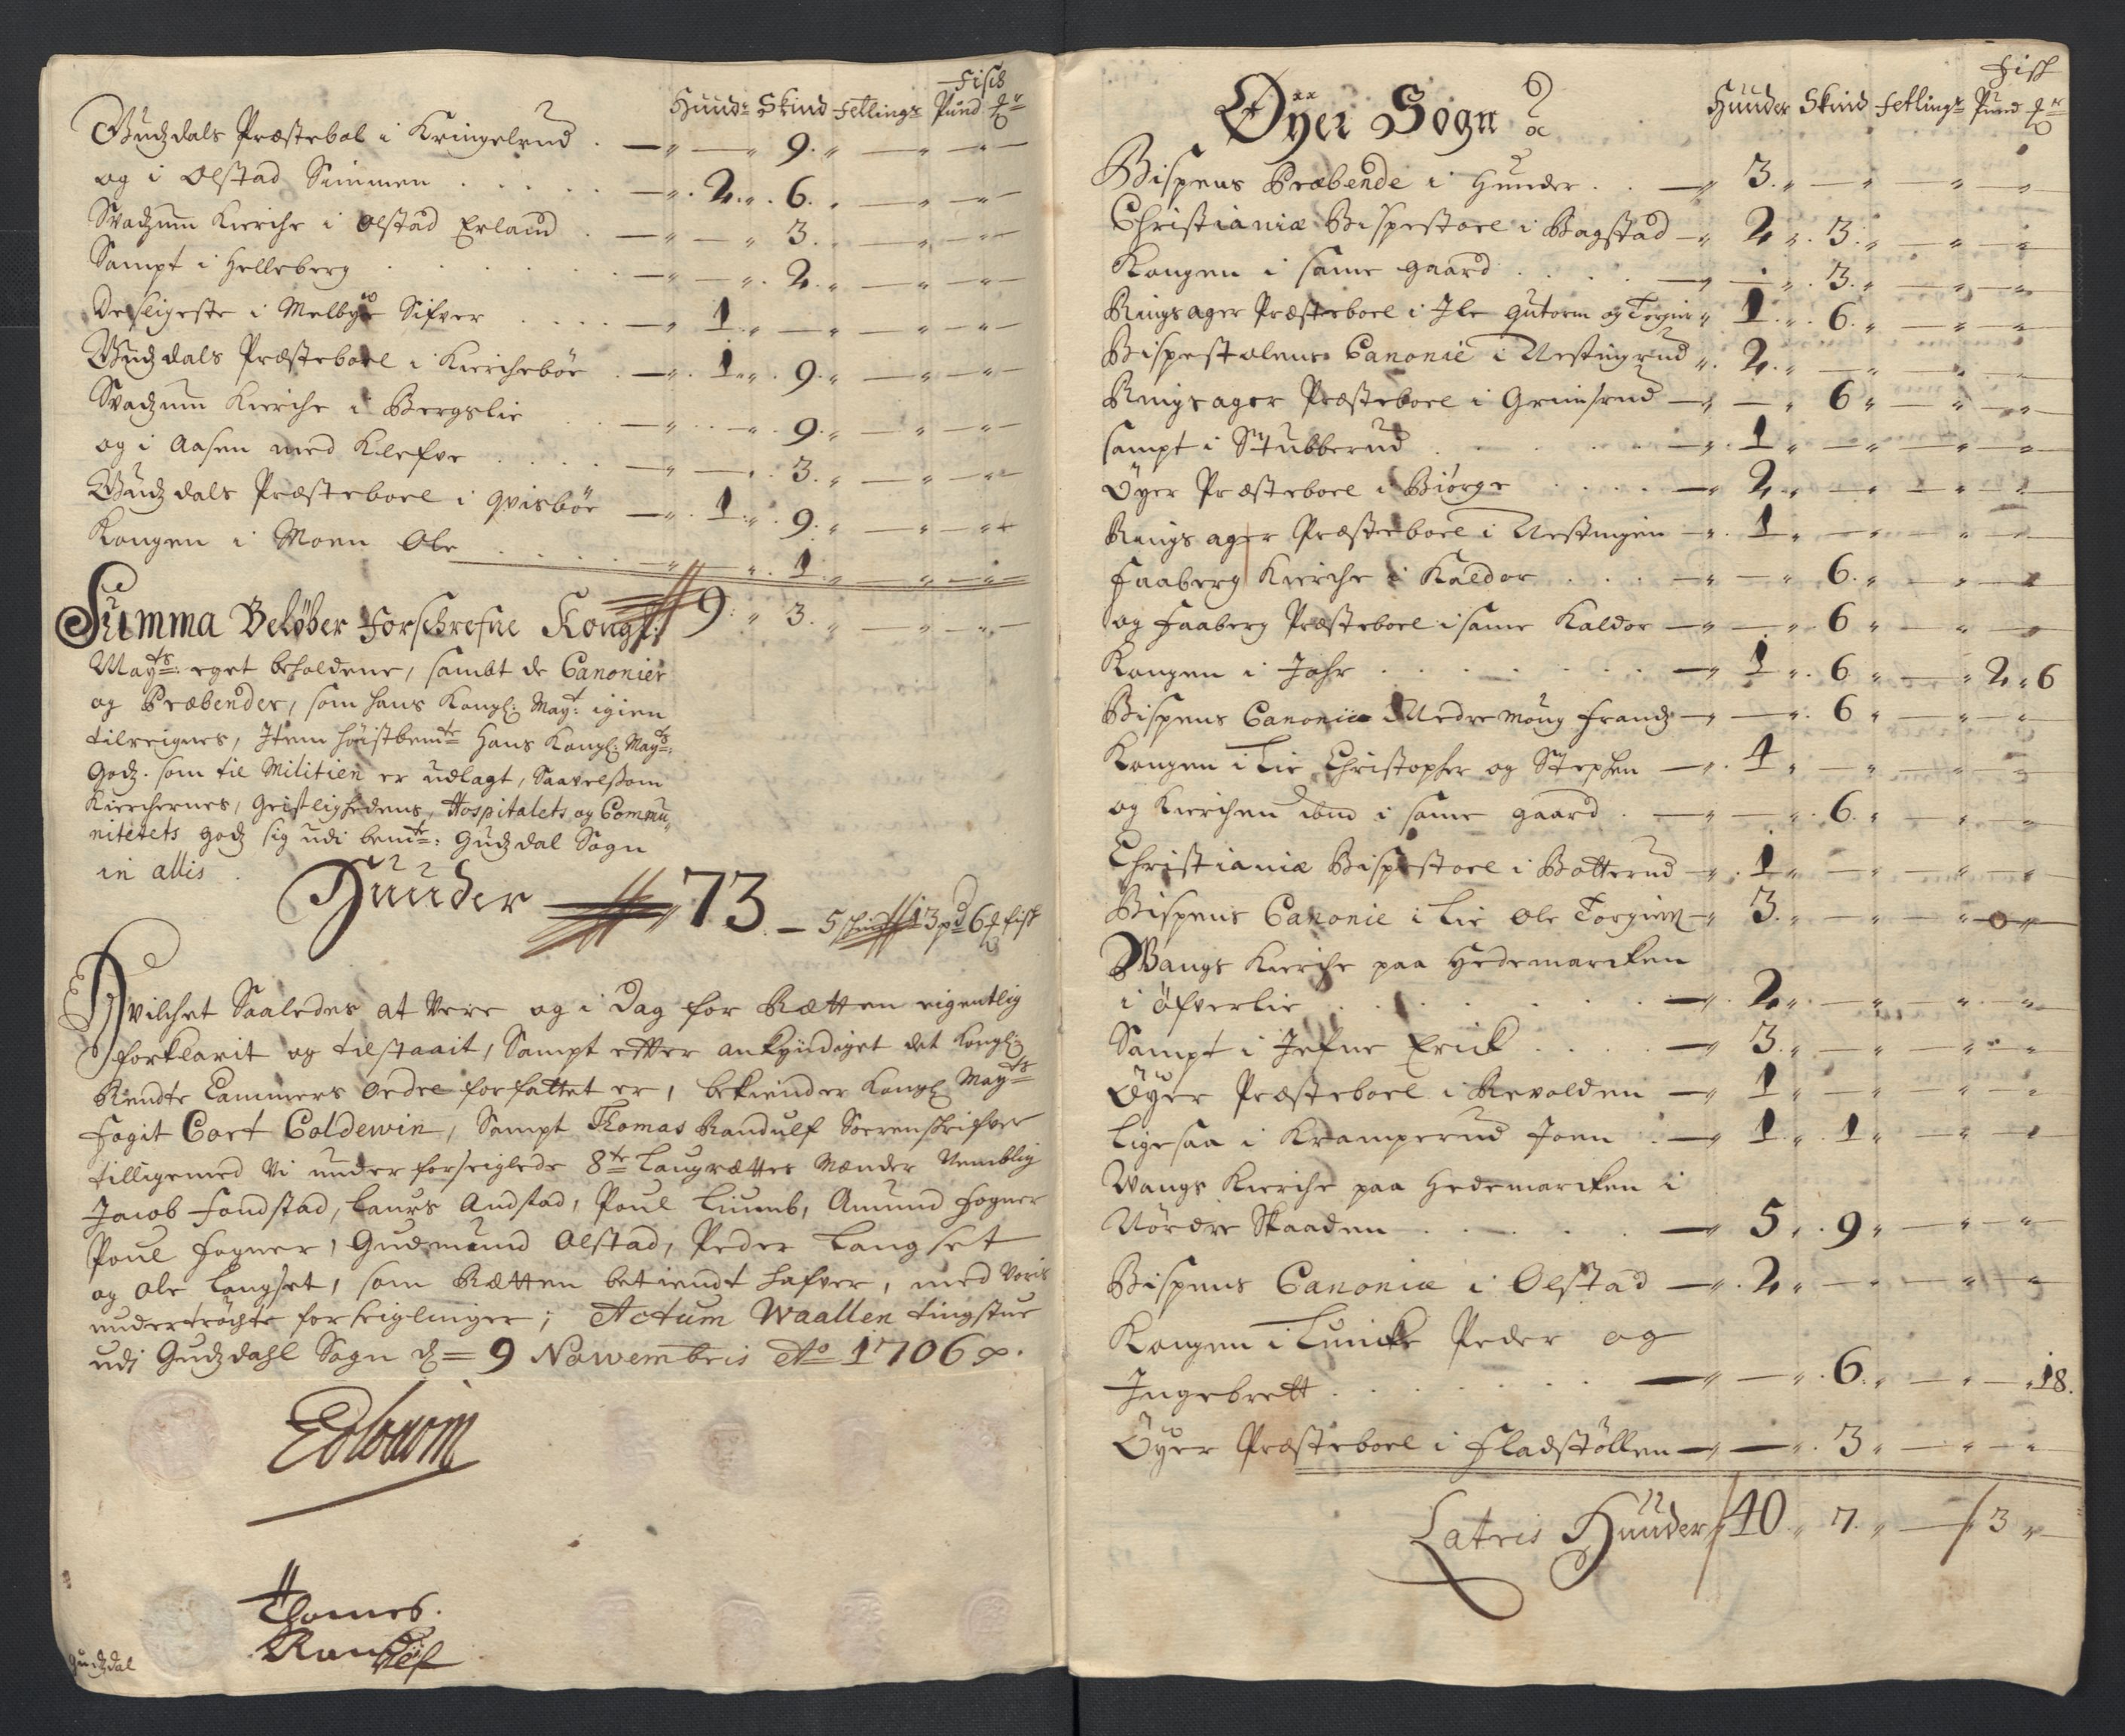 Fisch
Hund: Skind Fetling: Pund ℔
Gudzdals Præstebol i Kringelrud . — " — " 9. " — " — " —
og i Olstad Simmen . . . . — " . 2. " . 6. " — " — " —
Svadzum Kierche i Olstad Erland . — " — " 3. " — " — " —
Sampt i Helleberg . . . . — " — " . 2. " — " — " —
Desligeste i Melbye Sifver . . . . — " 1. " — " — " — " —
Gudzdals Præsteboel i Kierchebøe . — " . 1. " . 9. " — " — " —
Svadzum Kierche i Bergslie . . — " — " . 9. " — " — " —
og i Aasen med Klefve . . . . — " — " . 3. " — " — " —
Gudzdals Præsteboel i Qvisbøe — " . 1. " . 9. " — " — " —
Kongen i Moen Ole . . . . — " — " . 1. " — " — " —
Summa Beløber Forschrefne Kongl: 9. " 3. " — " — " —
Mayts: eget beholdene, sambt de Canonier
og Præbender, som hans Kongl: Mayt: igien
tilreignes, Item høistbemte Hans Kongl: Mayts:
Godz. som til Militien er udlagt, Saavelsom
Kierchernes, Geistlighedens, Hospitalets og Commu„
nitetets godz sig udi bemte: Gudzdal Sogn
in allis .
Hunder — 73 — 5 skind 13 pd 6 ℔ fisk
Hvilchet Saaledes at Vere og i Dag for Rætten eigentlig
forklarit og tilstaait, Sampt efter ankyndiget det Kongl:
Rendte Cammers Ordre forfattet er, bekiender Kongl Mayts
Fogit Cort Coldewin, Sampt Thomas Randulf Sorenskrifver
tilligemed Vi underforseiglede 8te Laugrættes Mænder Nemblig
Jacob Fondstad, Laurs Andstad, Poul Liumb, Amund Fogner
Poul Fogner, Gudmund Olstad, Peder Langset
og Ole Langset, som Rætten betiendt hafver, med Voris
undertrøchte forseiglinger; Actum Waallen tingstue
udi Gudzdahl Sogn d= 9 Nowembris Ao 1706
Thomes.
Randulf
Gudzdal
Øyer Sogn
Fisk
Hunder Skind Fetling: Pund ℔
Bispens Præbende i Hunder . . — " 3. " — " — " — "
Christianiæ Bispestoel i Bagstad — " 2. " . 3. " — " — "
Kongen i same gaard . . . . — " — " . 3. " — " — "
Ringsager Præsteboel i Jle Gutorm og Torgier " 1. " . 6. " — " — "
Bispestolens Canonie i Nestingrud " . 2. " — " — " — "
Ringsager Præsteboel i Grimsrud — " — " 6 " — " — "
sampt i Stubberud . . . . — " . 1 " — " — " — "
Øyer Præsteboel i Biørge . . . . — " 2. " — " — " — "
Ringsager Præsteboel i Nestingen — " . 1 " — " — " — "
Faaberg Kierche i Kaldor . . . — " — " 6. " — " — "
og Faaberg Præsteboel i same Kaldor — " — " 6 " — " — "
Kongen i Johr . . . . . . . — " 1 " . 6 " — " 2. " 6
Bispens Canonie i Nedre Moug Frandz — " — " . 6 " — " — "
Kongen i Lie Christopher og Stephen — " . 4 " — " — " — "
og Kierchen ibm i same gaard . — " — " . 6. " — " — "
Christianiæ Bispestoel i Botterud — " . 1 " — " — " — "
Bispens Canonie i Lie Ole Torgiern — " 3. " — " — " — "
Wangs Kierche paa Hedemarcken
i Øfverlie . . . . . . . — " . 2. " — " — " — "
Sampt i Jefne Erick . . . . — " 3. " — " — " — "
Øyer Præsteboel i Revolden — " 1 " — " — " — "
Ligesaa i Kramperud Joen . — " 1. " . 1 " — " — "
Wangs Kierche paa Hedemarcken i
Nørdre Skaaden . . . . . — " 5 " . 9 " — " — "
Bispens Canonie i Olstad — " . 2 " — " — " — "
Kongen i Lunke Peder og
Ingebrett . . . . . . . — " — " . 6. " — " — " 18.
Øyer Præsteboel i Fladstøllen — " — " . 3 " — " — "
Latris Hunder 40 " 7. " — " 3 " —